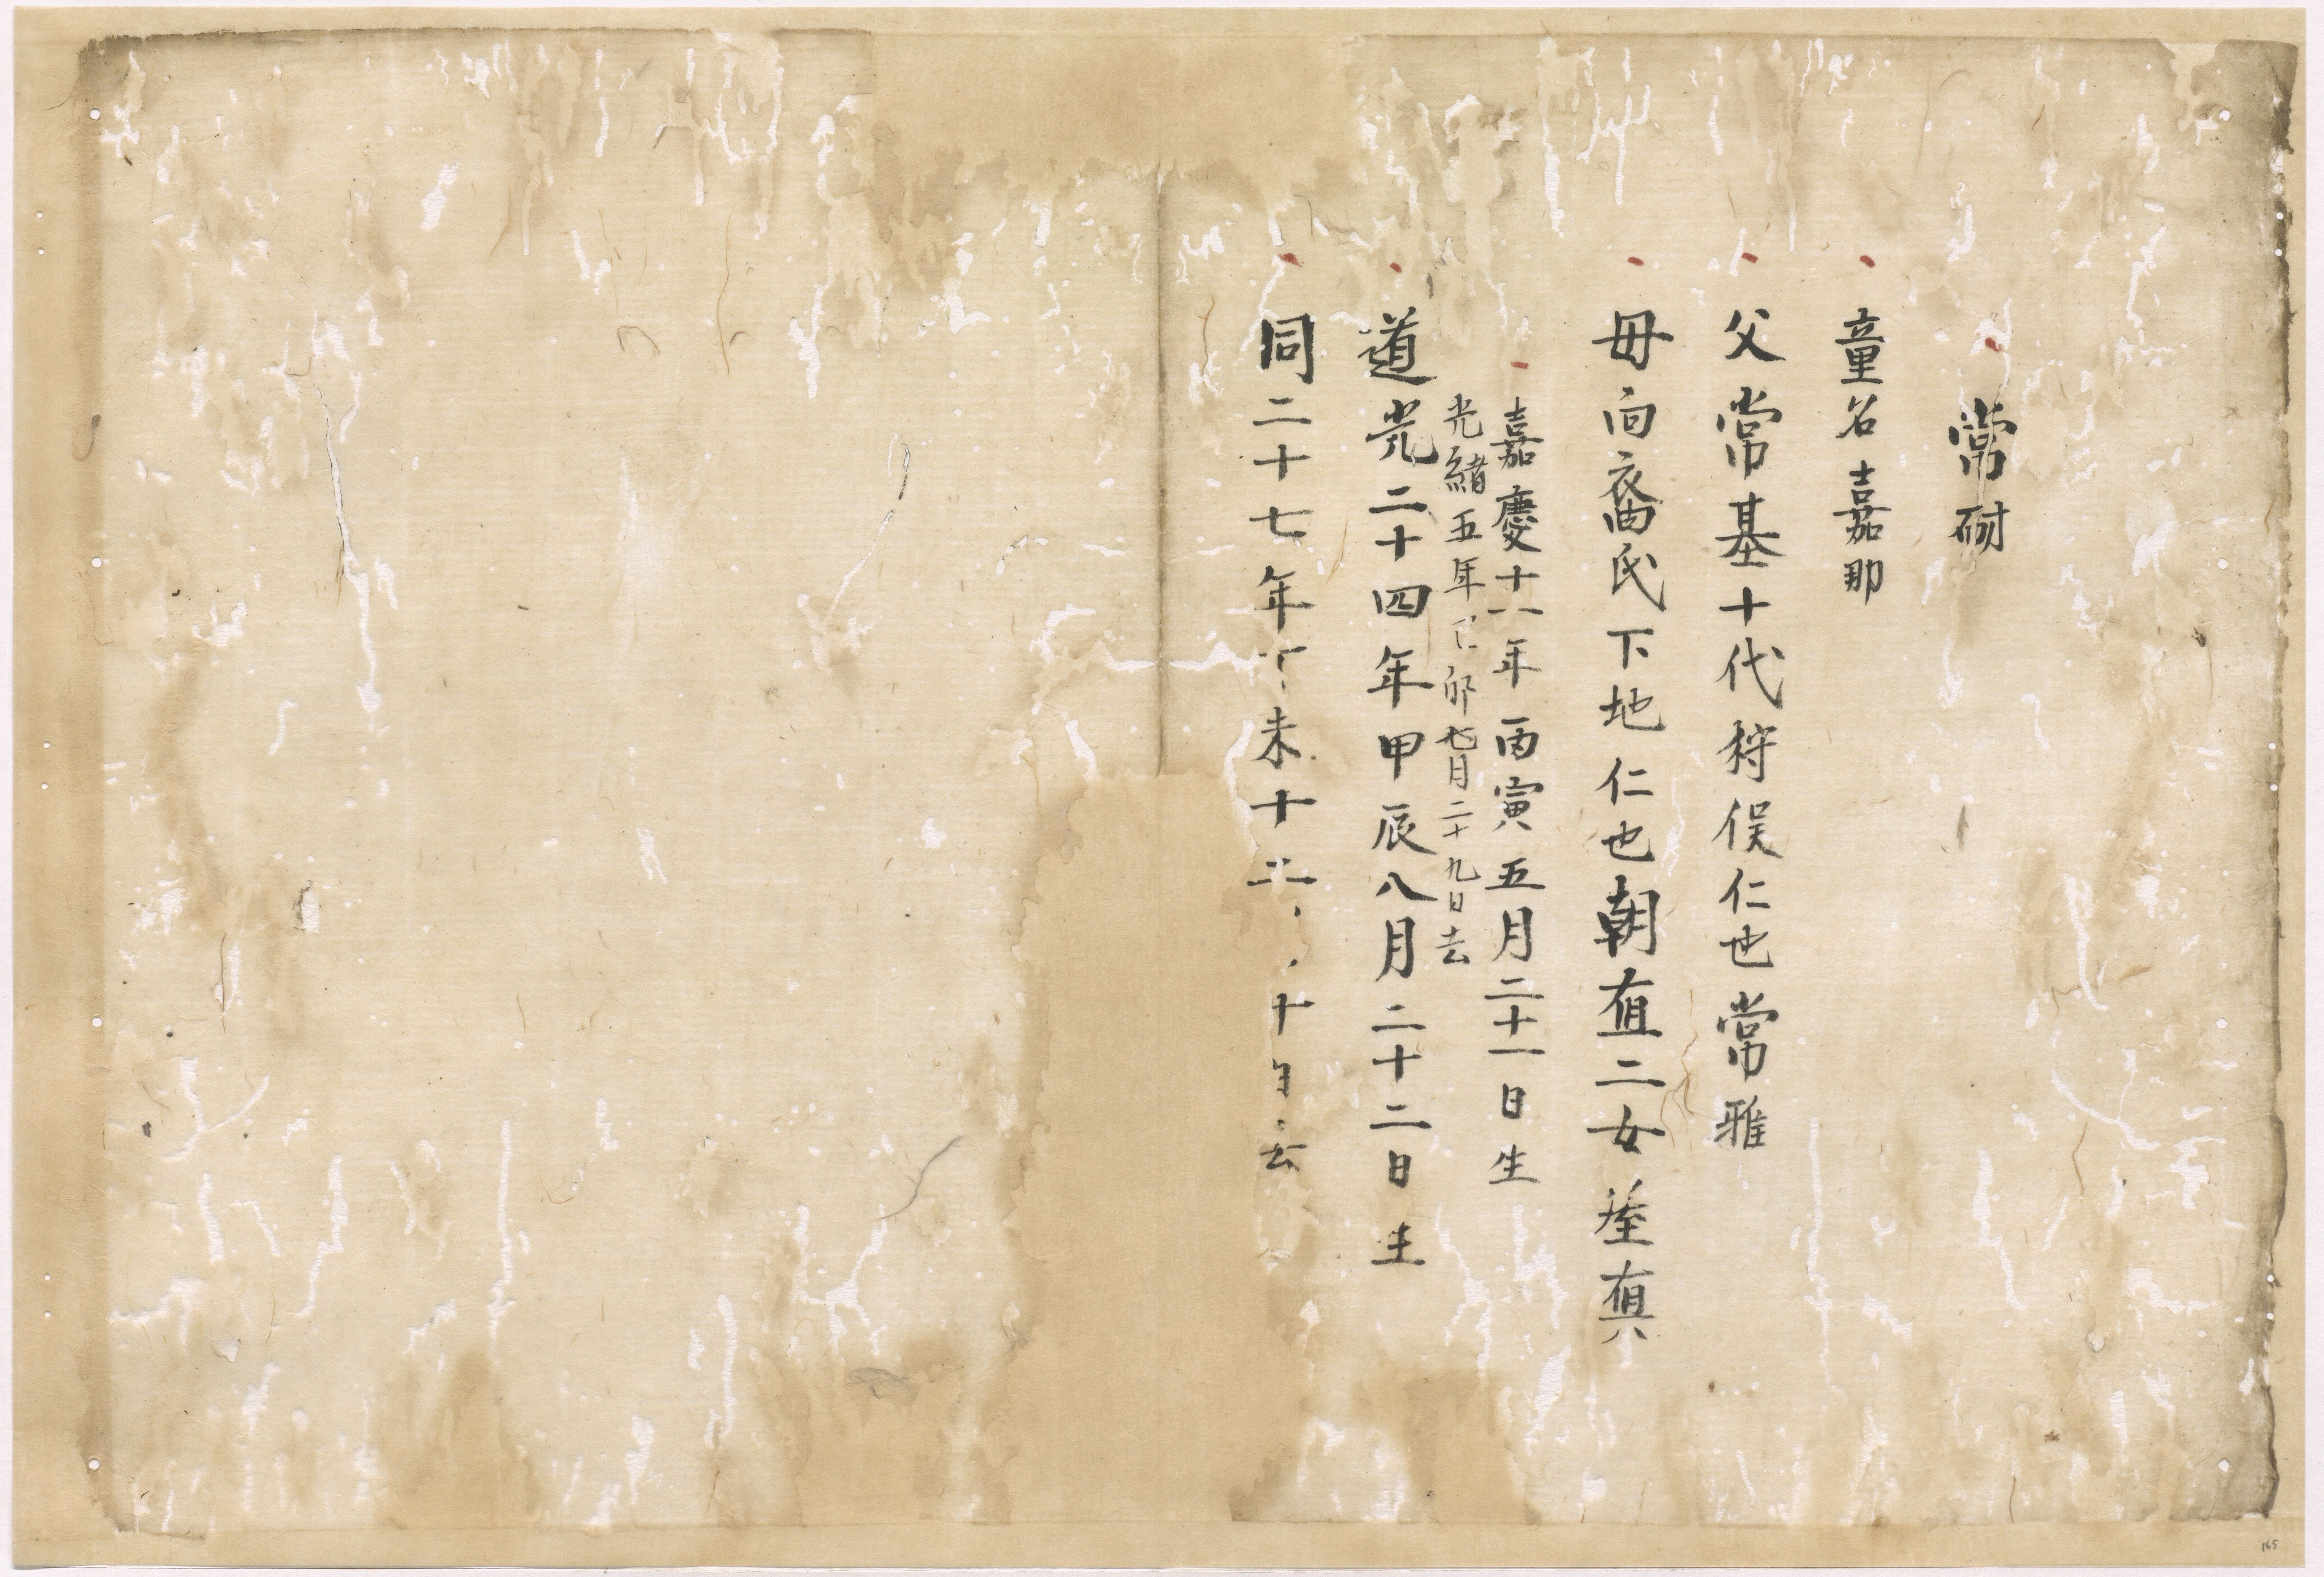 常耐
童名嘉那
父常基十代狩俣仁也常雅
母向裔氏下地仁也朝宜二女
嘉慶十一年丙寅五月二十一日生
光緒五年己卯七月二十九日去
道光二十四年甲辰八月二十二日生
同二十七年丁未十二 十日去
165